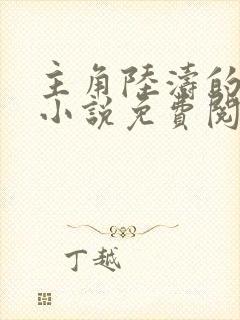 主角陸濤的
小說免費閱
丁越